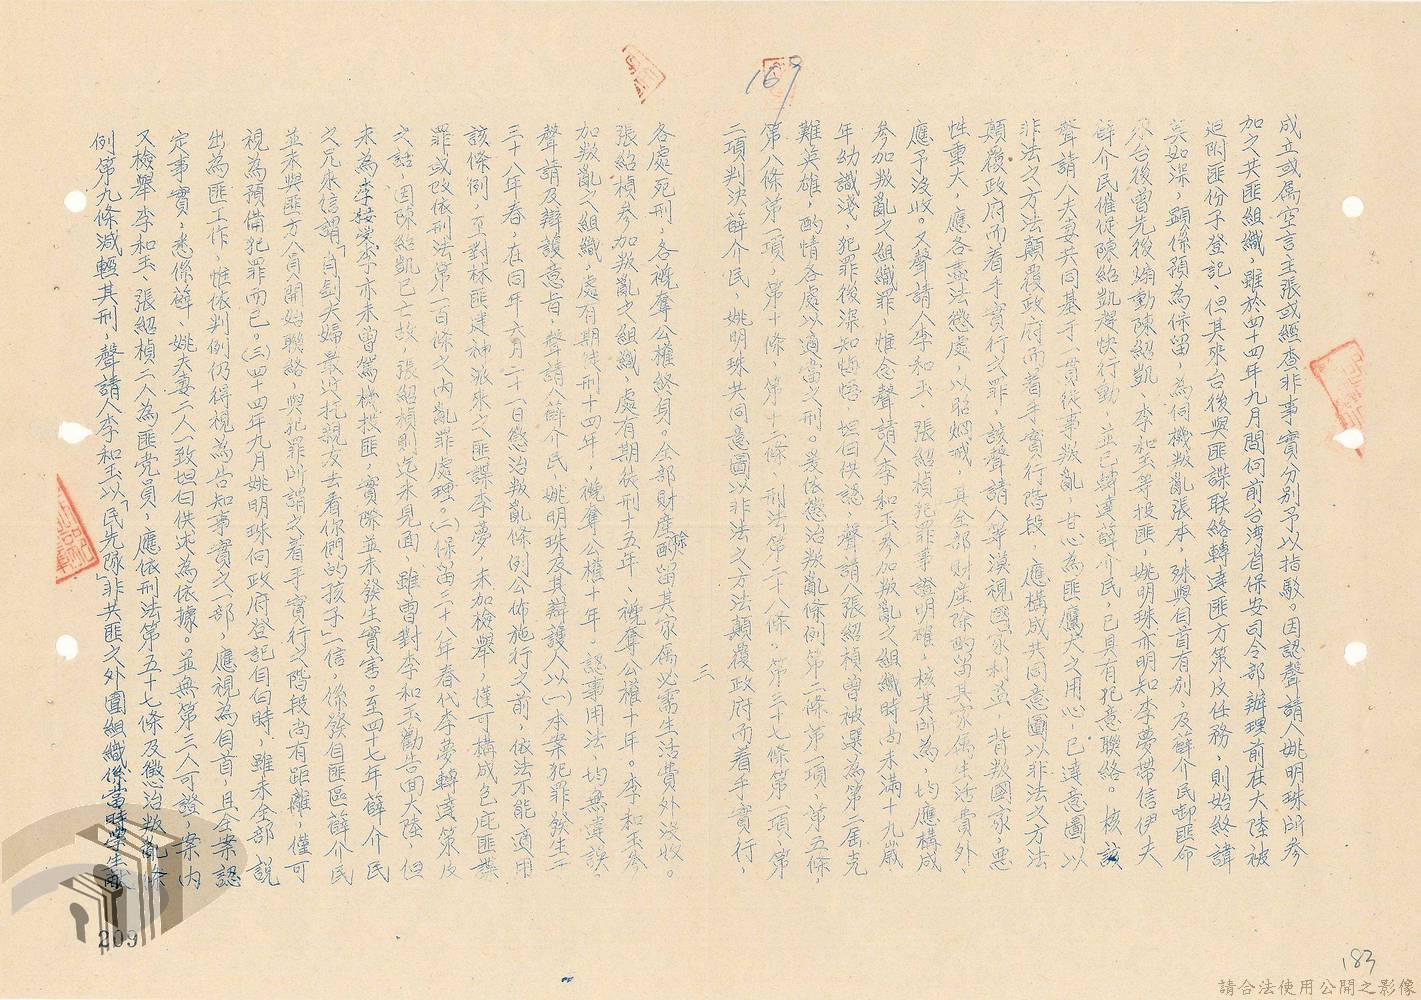 169
成立或屬空言主張或經查非事實分別予以指駁。因認聲請人姚明珠所參
加之共匪組織，雖於四十四年九月間向前台湾省保安司令部辦理前在大陸被
迫附匪份子登記，但其來台後與匪諜联絡轉達匪方策反任務，則始終諱
莫如深，顯係預為保留，為伺機叛亂張本，殊與自首有別，及薛介民卸匪命
來台後曾先後煽動陳紹凱、李和玉等投匪，姚明珠亦明知李夢帶信伊夫
薛介民催促陳紹凱趕快行動，並已轉達薛介民，已具有犯意聯絡。核該
聲請人夫妻共同基于一貫從事叛亂，甘心為匪鷹犬之用心，已達意圖以
非法之方法顛覆政府而着手實行階段，應構成共同意圖以非法之方法
顛覆政府而着手實行之罪，該聲請人等漠視國家利益，背叛國家，惡
性重大，應各盡法懲處，以昭炯戒，其全部財產除酌留其家屬生活費外、
應予沒收。又聲請人李和玉、張紹楨犯罪事證明確，核其所為，均應構成
參加叛亂之組織罪，惟念聲請人李和玉參加叛亂之組織時尚未滿十九歲
年幼識淺，犯罪後深知悔悟，坦白供認，聲請人張紹楨曾被選為第二屆克
難英雄，酌情各處以適當之刑。爰依懲治叛亂條例第二條第一項，第五條，
第八條第一項，第十條，第十二條，刑法第二十八條。第三十七條第一項、第
二項判決薛介民、姚明珠共同意圖以非法之方法顛覆政府而着手實行，
三
各處死刑，各褫奪公權終身。全部財產除酌留其家屬必需生活費外沒收。
張紹楨參加叛亂之組織，處有期徒刑十五年、褫奪公權十年。李和玉參
加叛亂之組織，處有期徒刑十四年，褫奪公權十年，認事用法，均無違誤。
聲請及辯護意旨，聲請人薛介民，姚明珠及其辯護人以㈠本案犯罪發生三
三十八年春，在同年六月二十一日懲治叛亂條例公佈施行之前，依法不能適用
該條例，至對林匪建神派來之匪諜李夢，未加檢舉，僅可構成包庇匪諜
罪或改依刑法第一百條之內亂罪處理。㈡保留三十八年春代李夢轉達策反
之話，因陳紹凱已亡故，張紹楨則迄未見面，雖曾對李和玉勸告回大陸，但
未為李接受，李亦未曾駕機投匪，實際並未發生實害。至四十七年薛介民
之兄來信謂「肖劍夫婦最近托親友去看你們的孩子」一信，係發自匪區薛介民
並未與匪方人員開始聯絡，與犯罪所謂之着手實行之階段尚有距離，僅可
視為預備犯罪而已。㈢四十四年九月姚明珠向政府登記自白時，雖未全部說
出為匪工作，惟依判例仍得視為告知事實之一部，應視為自首，且全案認
定事實，悉係薛、姚夫妻二人一致坦白供述為依據。並無第三人可證，案內
又檢舉李和玉、張紹楨二人為匪党員，應依刑法第五十七條及懲治叛亂條
例第九條減輕其刑，聲請人李和玉以「民先隊」非共匪之外圍組織係當時學生
209
183
請合法使用公開之影像